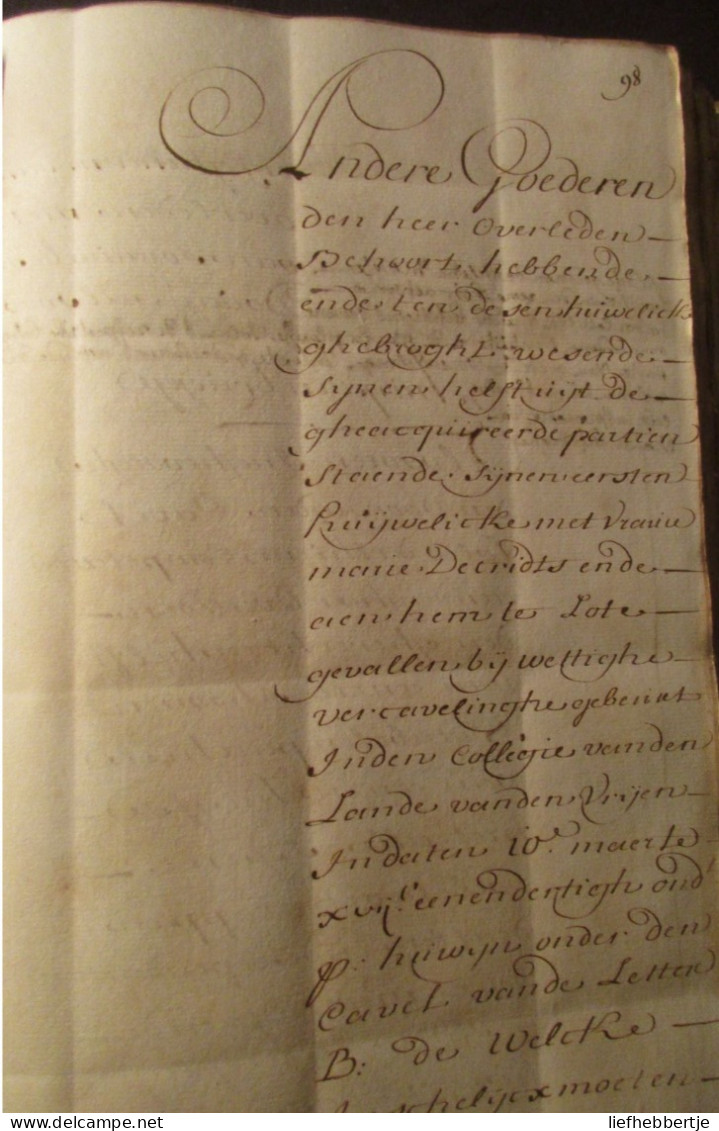 98
Andere Goederen
den heer Overleden
Behoort hebbende
ende ten desen huwelick
ghebroght wesende
synen helft uijt de
gheacquireerde partien
staende synen eersten
huijwelicke met Vrauw
marie Decridts ende
aen hem te Lote
gevallen bij wettighe
vercavelinghe gebeurt
Inden Collegie vanden
Lande vanden Vrijen
In daten 10e maerte
xvijc eenendertigh ondt
P: huwijn onder den
Cavel vande Letter
B: de Welcke
moeten
liefhebbertje